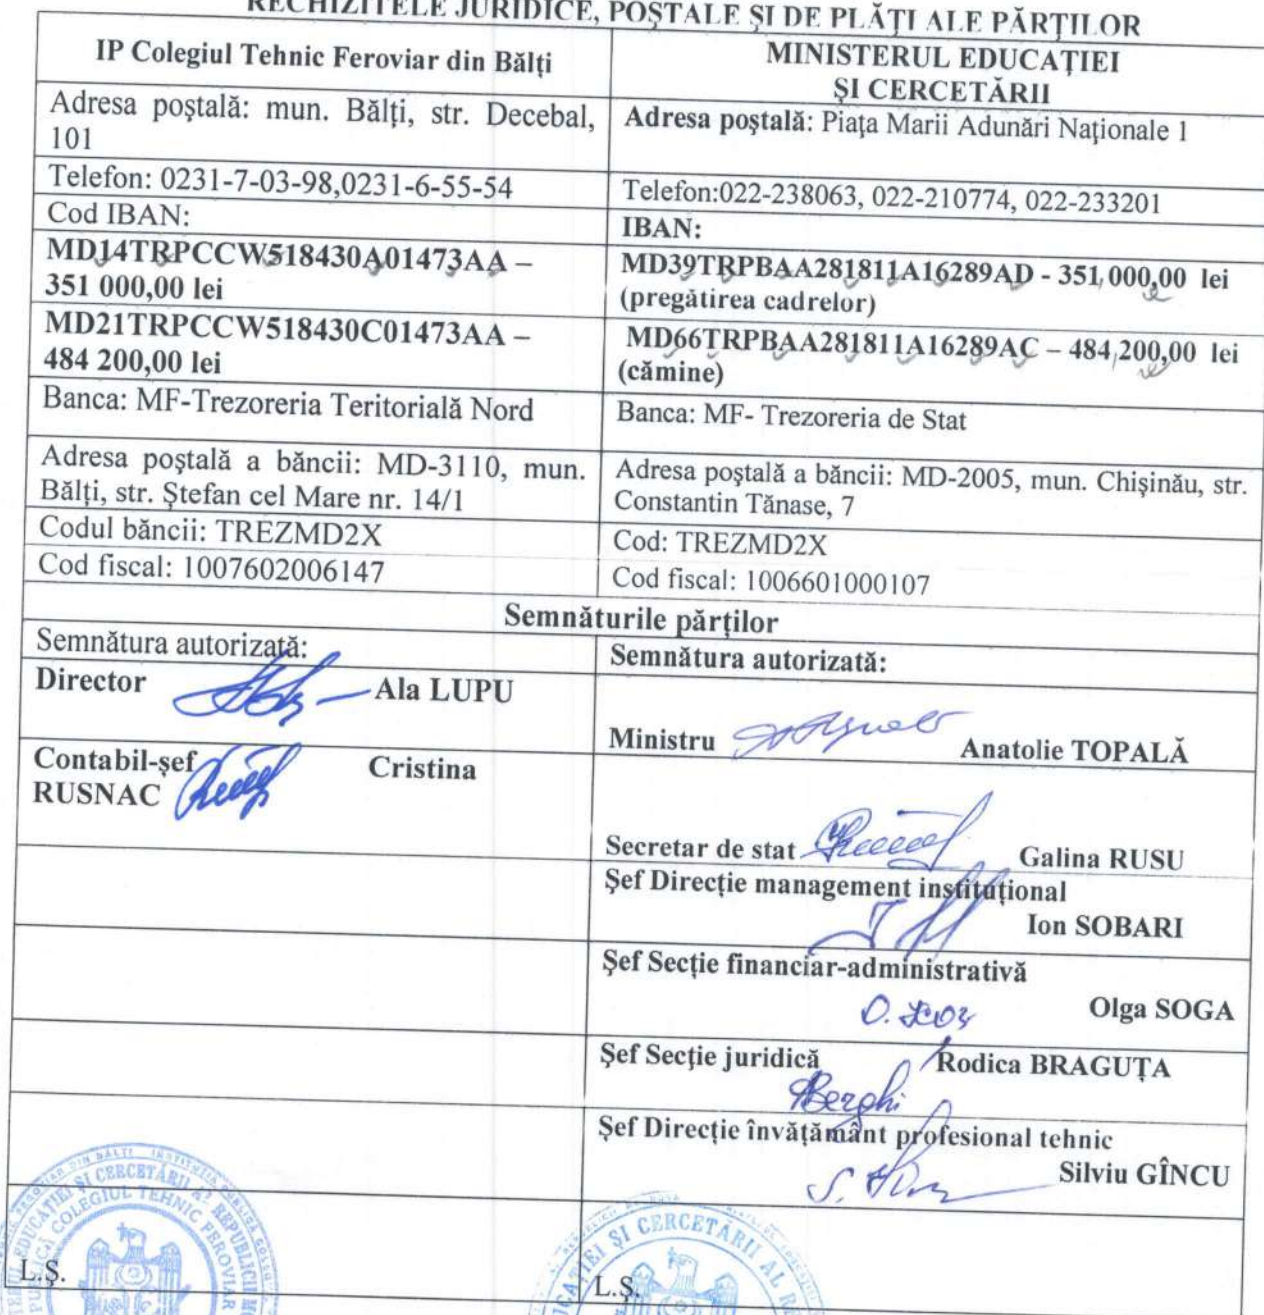 RECHIZITELE JURIDICE, POȘTALE ȘI DE PLĂȚI ALE PĂRȚILOR
IP Colegiul Tehnic Feroviar din Bălți
MINISTERUL EDUCAȚIEI
ȘI CERCETĂRII
Adresa poștală: mun. Bălți, str. Decebal,
101
Adresa poștală: Piața Marii Adunări Naționale 1
Telefon: 0231-7-03-98,0231-6-55-54
Telefon:022-238063, 022-210774, 022-233201
Cod IBAN:
IBAN:
MD14TRPCCW518430A01473AA –
351 000,00 lei
MD39TRPBAA281811A16289AD - 351 000,00 lei
(pregătirea cadrelor)
MD21TRPCCW518430C01473AA –
484 200,00 lei
MD66TRPBAA281811A16289AC – 484 200,00 lei
(cămine)
Banca: MF-Trezoreria Teritorială Nord
Banca: MF- Trezoreria de Stat
Adresa poștală a băncii: MD-3110, mun.
Bălți, str. Ștefan cel Mare nr. 14/1
Adresa poștală a băncii: MD-2005, mun. Chișinău, str.
Constantin Tănase, 7
Codul băncii: TREZMD2X
Cod: TREZMD2X
Cod fiscal: 1007602006147
Cod fiscal: 1006601000107
Semnăturile părților
Semnătura autorizată:
Semnătura autorizată:
Director Ala LUPU
Ministru Anatolie TOPALĂ
Contabil-șef Cristina
RUSNAC
Secretar de stat Galina RUSU
Șef Direcție management instituțional
Ion SOBARI
Șef Secție financiar-administrativă
Olga SOGA
Șef Secție juridică Rodica BRAGUȚA
Șef Direcție învățământ profesional tehnic
Silviu GÎNCU
L.Ș.
L.Ș.
COLEGIUL TEHNIC FEROVIAR
ȘI CERCETĂRII AL